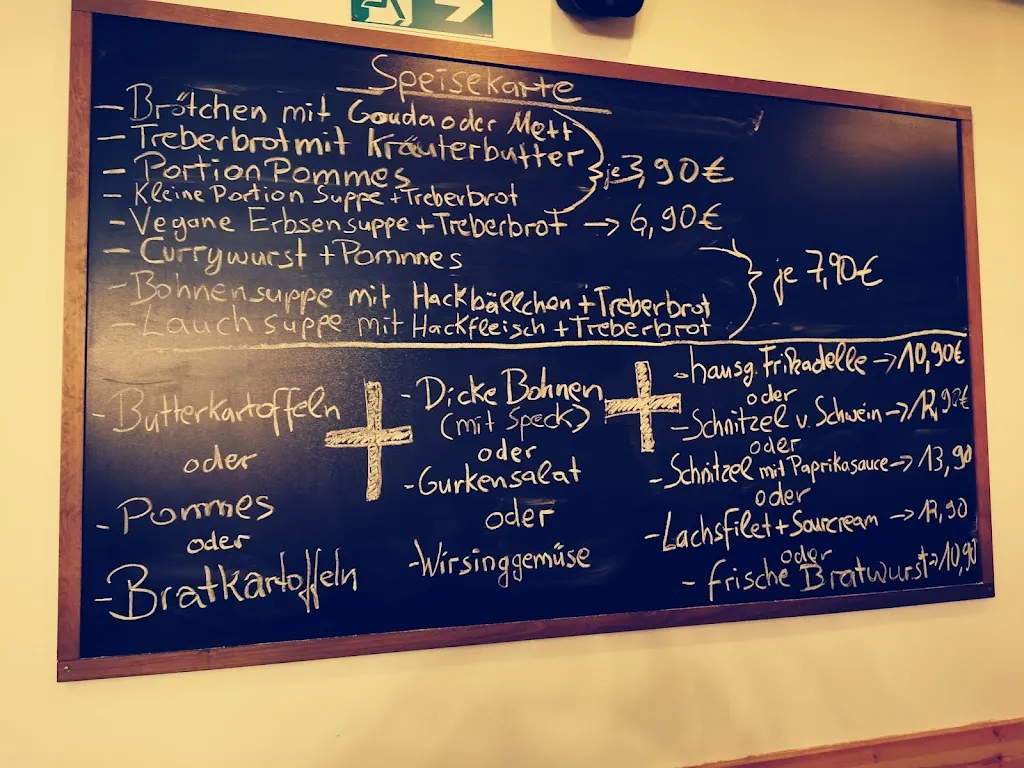 Speisekarte
- Brötchen mit Gouda oder Mett
- Treberbrot mit Kräuterbutter
- Portion Pommes
- Kleine Portion Suppe + Treberbrot
je 3,90 €
- Vegane Erbsensuppe + Treberbrot → 6,90 €
- Currywurst + Pommes
- Bohnensuppe mit Hackbällchen + Treberbrot
- Lauchsuppe mit Hackfleisch + Treberbrot
je 7,90 €
- Butterkartoffeln
oder
- Pommes
oder
- Bratkartoffeln
+
- Dicke Bohnen
(mit Speck)
oder
- Gurkensalat
oder
- Wirsinggemüse
+
- hausg. Frikadelle → 10,90 €
oder
- Schnitzel v. Schwein → 12,90 €
oder
- Schnitzel mit Paprikasauce → 13,90
oder
- Lachsfilet + Sourcream → 12,90
oder
- frische Bratwurst → 10,90